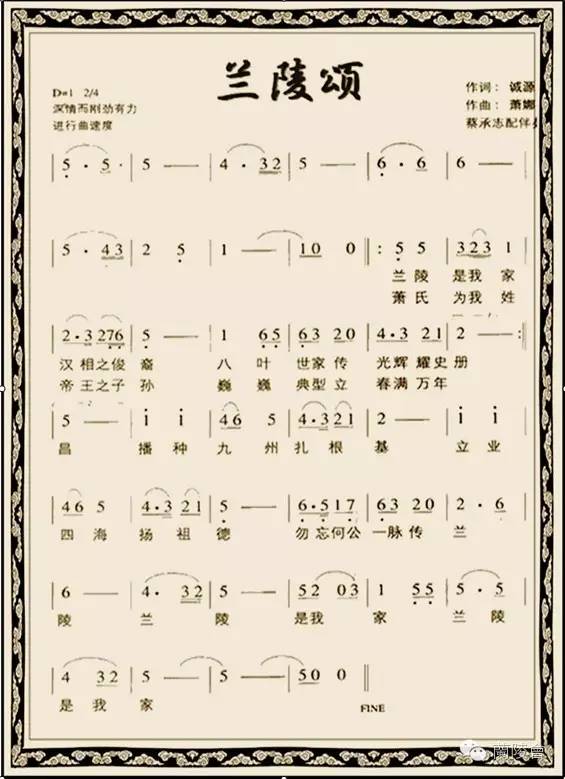 兰陵颂
D=1 2/4
深情而刚劲有力
进行曲速度
作词：诚源
作曲：萧娜
蔡承志配伴奏
| 5 · 5 · | 5 — | 4 · 32 | 5 — | 6 · 6 | 6 — |
| 5 · 43 | 2 5 | 1 — | 10 0 ‖: 5 5 | 323 1 |
兰 陵 是我 家
萧 氏 为我 姓
| 2·3 276 | 5 — | 1 65 | 63 20 | 4·3 21 | 2 — :‖
汉相之俊 裔 八 叶 世家 传 光辉 耀史 册
帝王之子 孙 巍 巍 典型 立 春满 万年
| 5 — | i i | 46 5 | 4·3 21 | 2 — | i i |
昌 播 种 九 州 扎 根 基 立 业
| 46 5 | 4·3 21 | 5 — | 6·5 17 | 63 20 | 2 · 6 |
四 海 扬 祖 德 勿忘何公 一脉 传 兰
| 6 — | 4 · 32 | 5 — | 52 03 | 1 55 | 5 · 5 |
陵 兰 陵 是我 家 兰 陵
| 4 32 | 5 — | 5 — | 50 0 ‖
是 我 家
FINE
蘭陵蕭